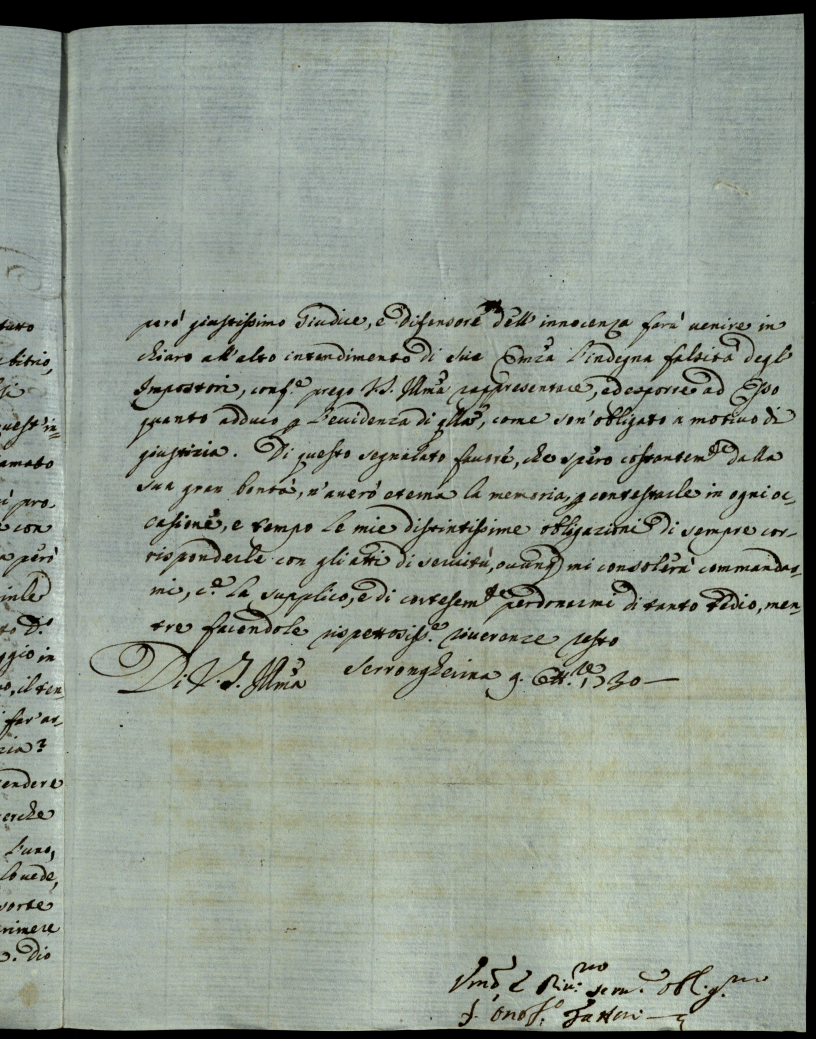 tutto
bitrio,
li
quest'in=
amato
i pro-
e con
a però
inle
to D.º
ggio in
o, il ten
far'ar
zia?
endere
erche
l'uno,
lo uede,
sorte
rimere
. Dio
però giustissimo Giudice, e Difensore dell'innocenza farà uenire in
chiaro all'alto intendimento di Sua Emza l'indegna falsità degl'
Impostori, conf.e prego V.S. Illma rappresentare, ed esporre ad Esso
quanto adduco p l'euidenza di qlla, come son'obligato a motiuo di
giustizia. Di questo segnalato fauore, che spero costantem.te dalla
sua gran bontà, n'auerò eterna la memoria, p contestarle in ogni oc-
casione, e tempo le mie distintissime obligazioni di sempre cor-
risponderle con gli atti di seruitù, ouunq mi consolerà commandar-
mi, c.e la supplico, e di cortesem.te perdonarmi di tanto tedio, men-
tre facendole rispettosiss.e riuerenze resto
Di V.S. Illma Serrongherina 9. Ott.re 1730
Vmo e Diu.mo seru.e obl.g.mo